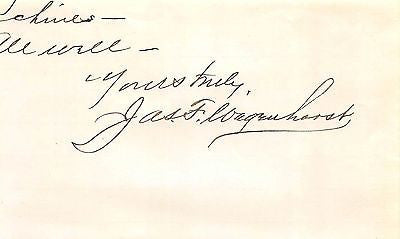 chines –
all well –
Yours truly,
Jas. F. Wagenhorst